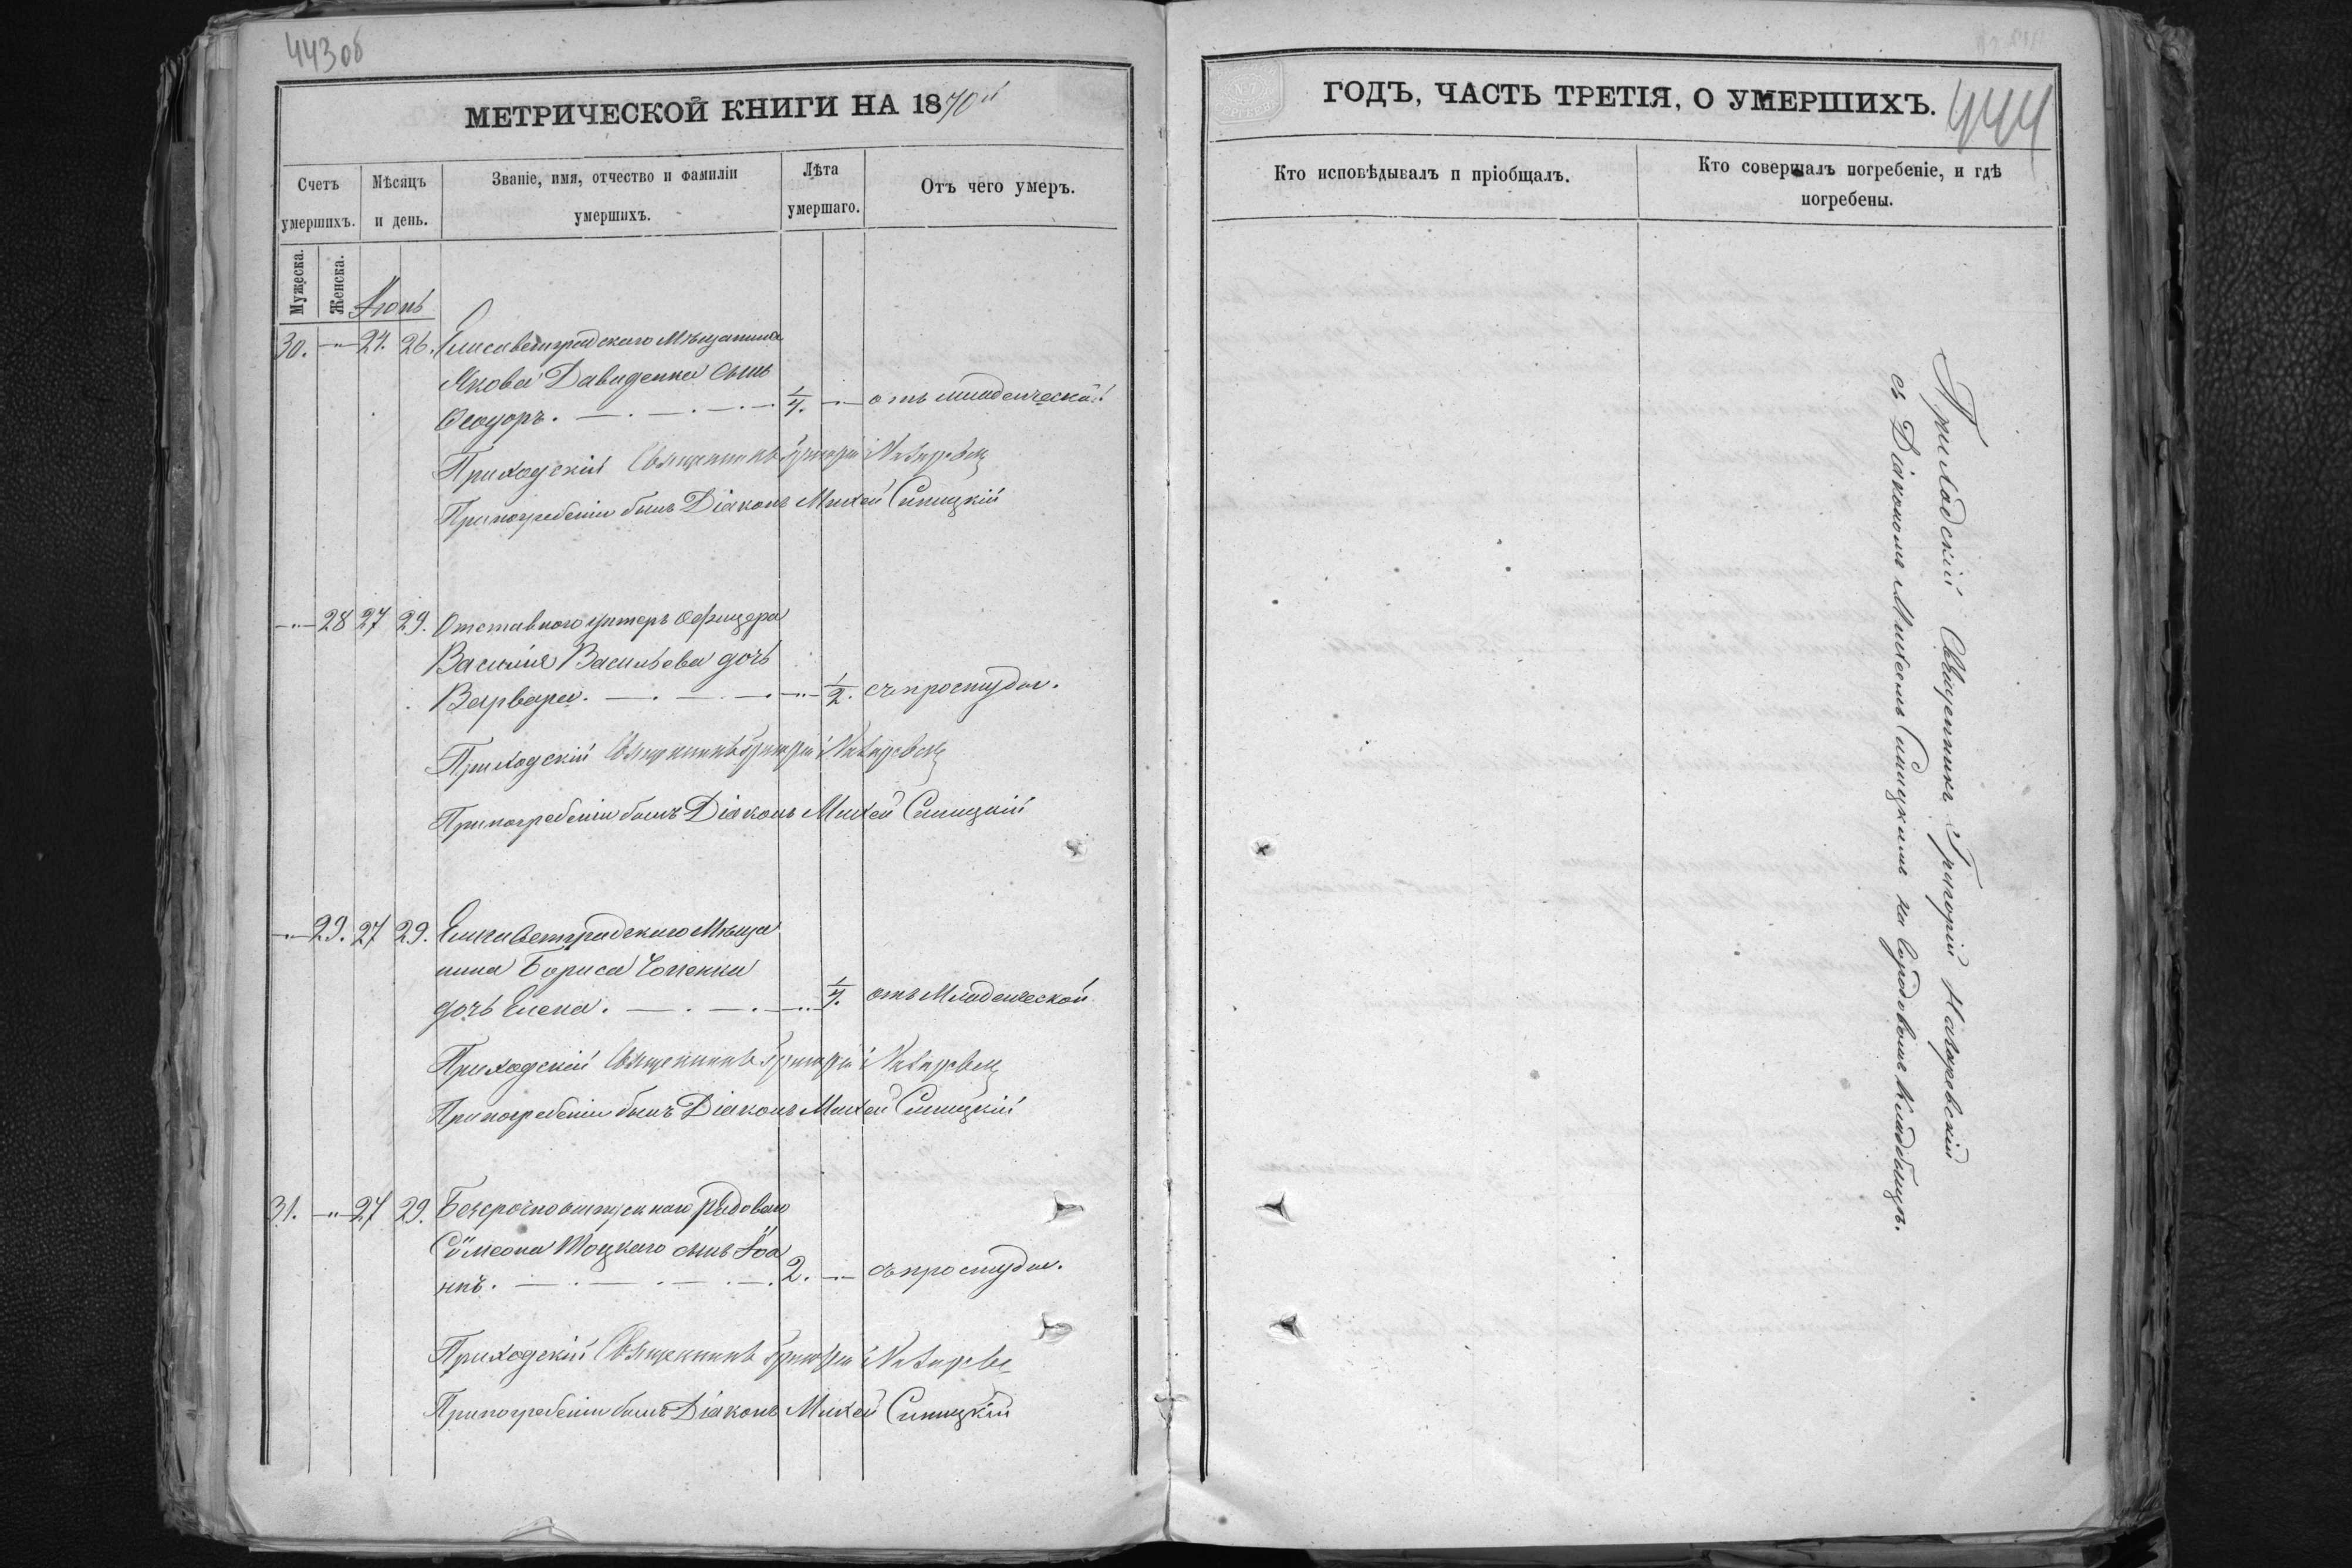 443 об
МЕТРИЧЕСКОЙ КНИГИ НА 1870й
Счетъ умершихъ.
Мѣсяцъ и день.
Званіе, имя, отчество и фамиліи умершихъ.
Лѣта умершаго.
Отъ чего умеръ.
Мужеска.
Женска.
Іюнь
30. -"- 24. 26. Елисаветградскаго Мѣщанина
Якова Давиденка сынъ
Ѳеодоръ. 1/4. -"- отъ младенческой
Приходскій Священникъ Григорій
При погребеніи былъ Діаконъ Михей Синицкій
-"- 28 27 29. Отставнаго унтеръ офицера
Василія Васильева дочь
Варвара. -"- 1/2. съ простуды.
Приходскій Священникъ Григорій
При погребеніи былъ Діаконъ Михей Синицкій
-"- 29. 27 29. Елисаветградскаго Мѣща
нина Бориса
дочь Елена. -"- 1/4. отъ Младенческой
Приходскій Священникъ Григорій
При погребеніи былъ Діаконъ Михей Синицкій
31. -"- 27 29. Безсрочноотпускнаго рядоваго
Сѵмеона Тоцкаго сынъ Іоа
ннъ. 2. -"- съ простуды.
Приходскій Священникъ Григорій
При погребеніи былъ Діаконъ Михей Синицкій
ГОДЪ, ЧАСТЬ ТРЕТІЯ, О УМЕРШИХЪ.
444
Кто исповѣдывалъ и пріобщалъ.
Кто совершалъ погребеніе, и гдѣ
погребены.
Приходскій Священникъ Григорій
съ Діакономъ Михеемъ Синицкимъ на Городовомъ Кладбищѣ.